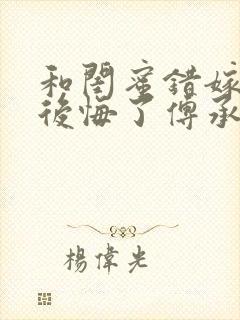 和閨蜜錯嫁
後悔了傅承
楊偉光